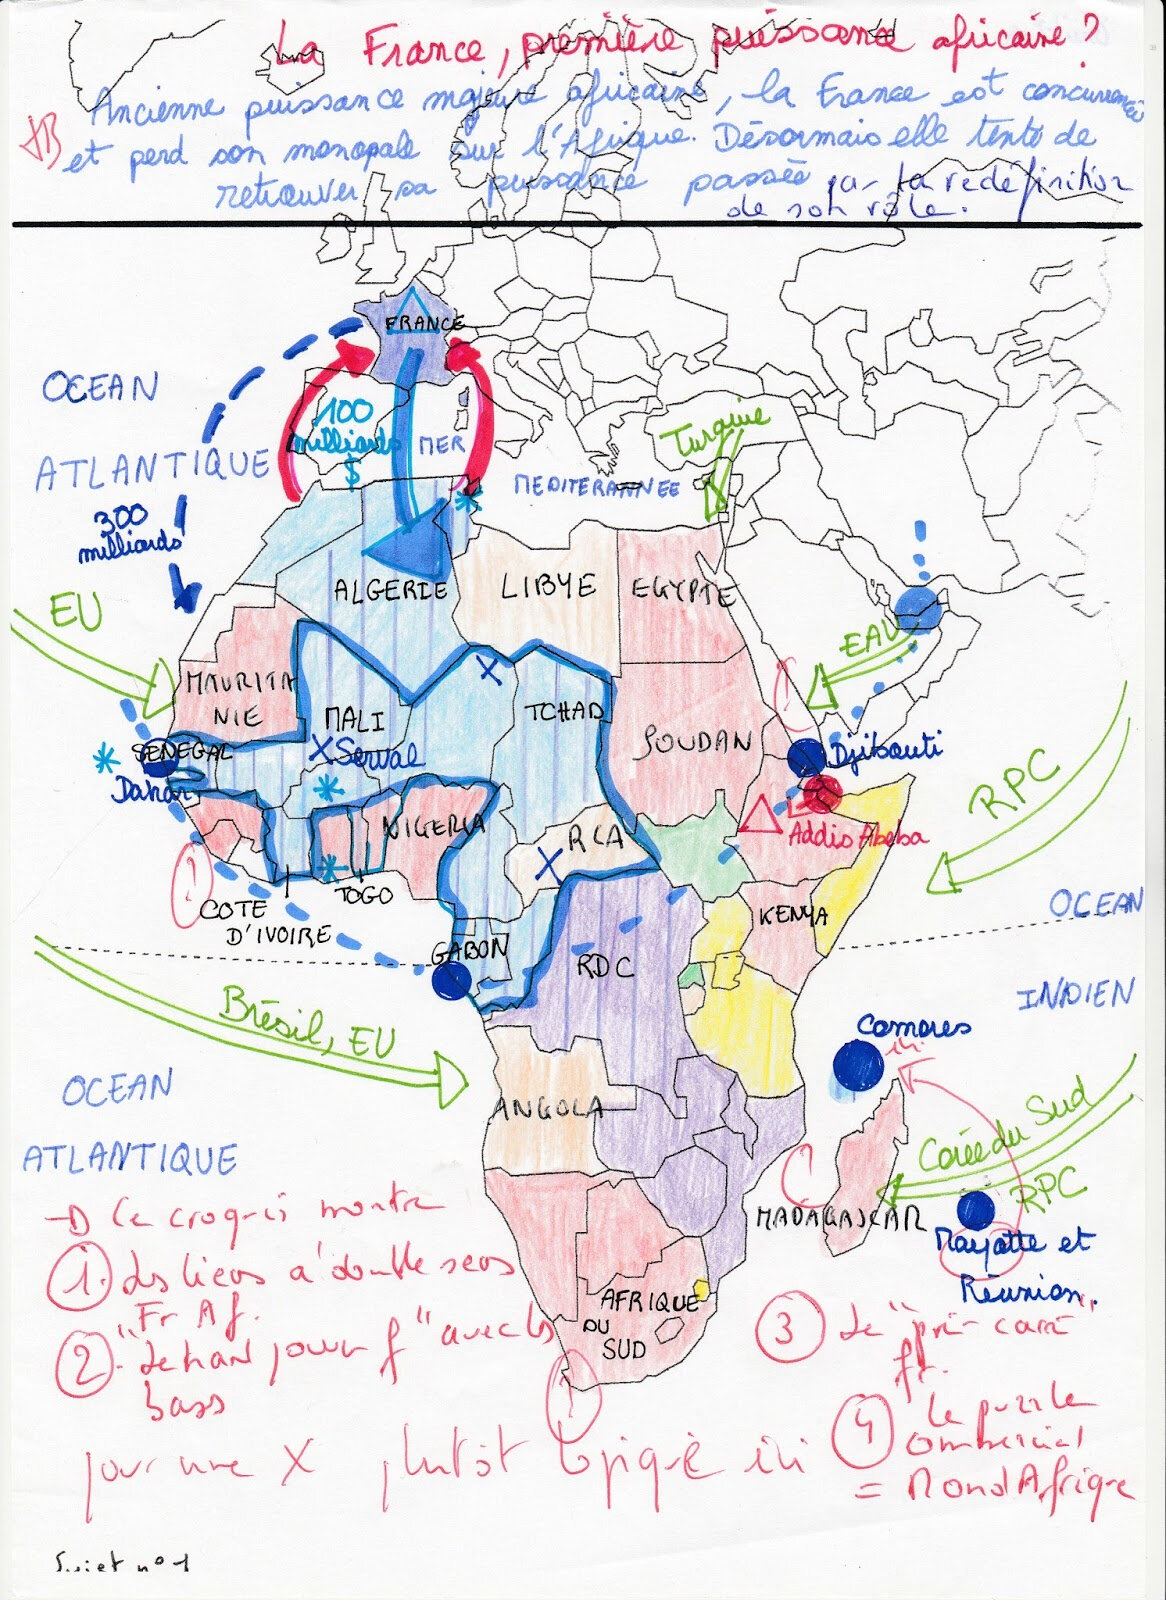 La France, première puissance africaine ?
TB
Ancienne puissance majeure africaine, la France est concurrencée
et perd son monopole sur l'Afrique. Désormais elle tente de
retrouver sa puissance passée par la redéfinition
de son rôle.
FRANCE
OCEAN
ATLANTIQUE
100
milliards
$
MER
MEDITERANNEE
Turquie
300
milliards
EU
ALGERIE
LIBYE
EGYPTE
EAU
MAURITA
NIE
MALI
Serval
TCHAD
SOUDAN
SENEGAL
Dakar
Djibouti
RPC
NIGERIA
RCA
Addis Abeba
TOGO
COTE
D'IVOIRE
KENYA
OCEAN
INDIEN
GABON
RDC
Brésil, EU
Comores
ici
OCEAN
ATLANTIQUE
ANGOLA
Corée du Sud
RPC
MADAGASCAR
Mayotte et
Réunion
AFRIQUE
DU
SUD
Ce croquis montre
1. Les liens à double sens
Fr Af.
2.
avec les
bases
3 Le "pré-carré
fr.
4 Le puzzle
commercial
= MondAfrique
pour une X plutôt logique ici
Sujet n° 1